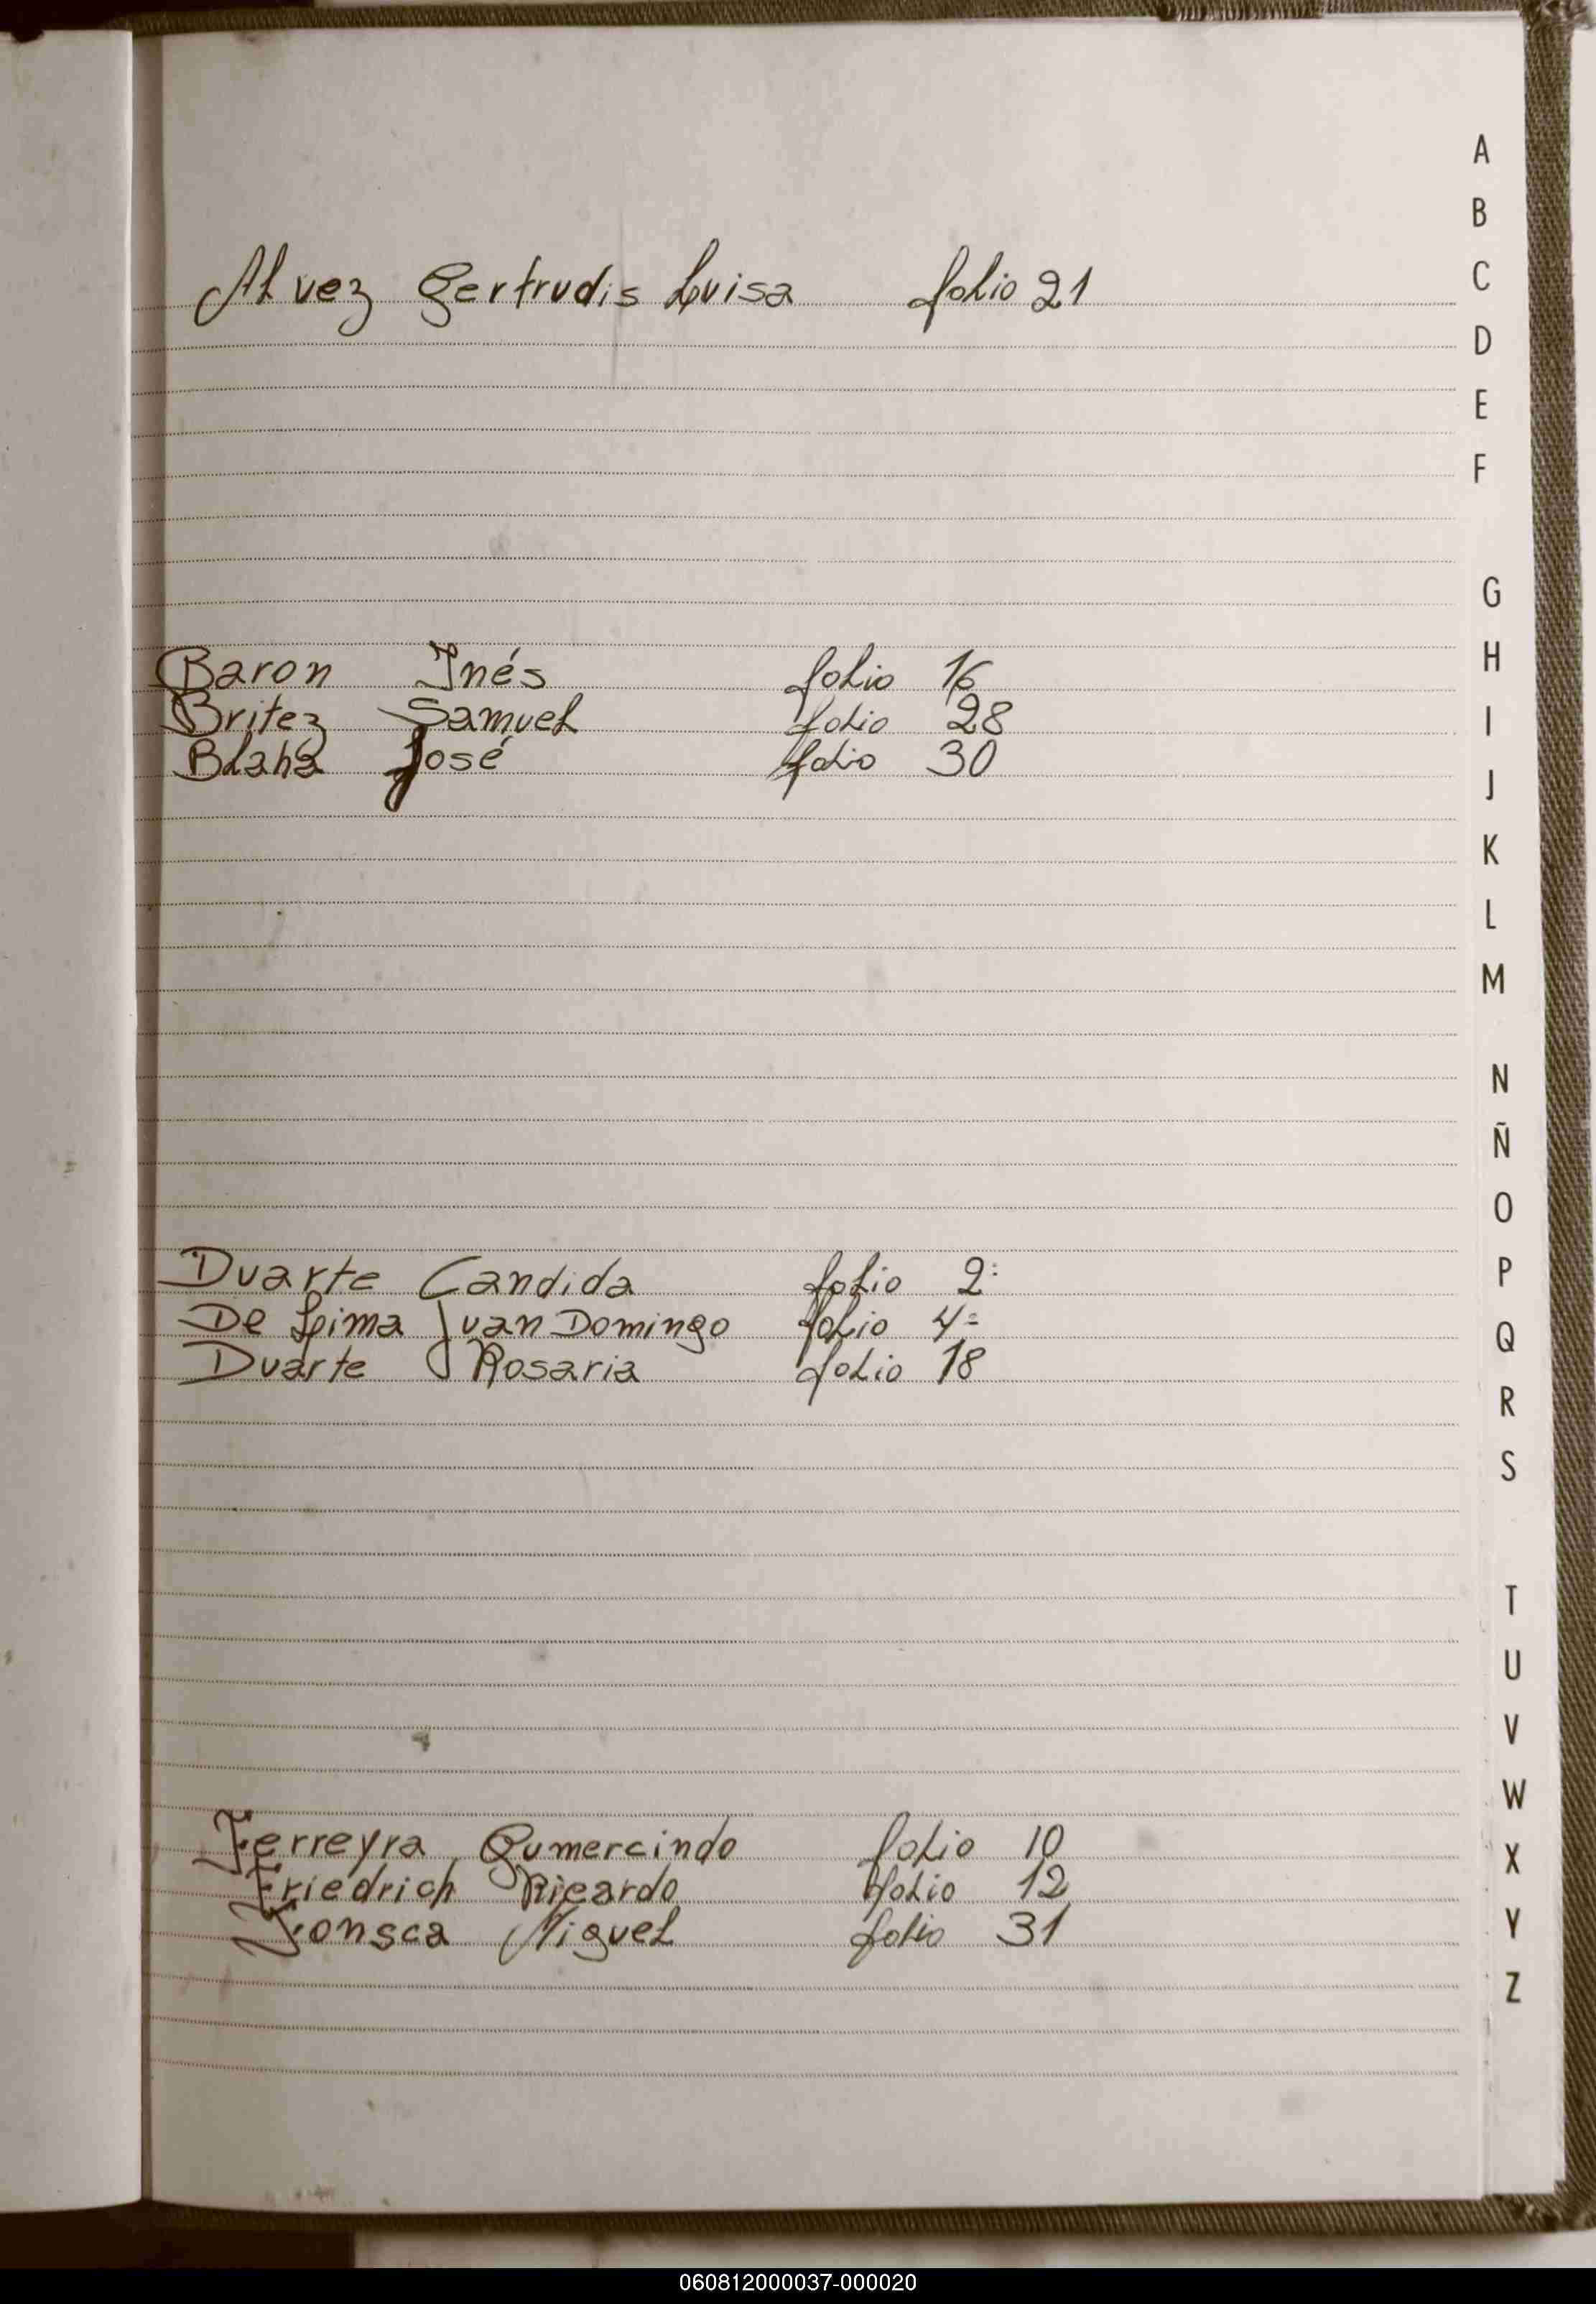 A
B
Alvez Gertrudis Luisa folio 21
C
D
E
F
G
H
Baron Inés folio 16
Britez Samuel folio 28
I
Blaha José folio 30
J
K
L
M
N
Ñ
O
Duarte Candida folio 2=
P
De Lima Juan Domingo folio 4=
Q
Duarte Rosaria folio 18
R
S
T
U
V
W
Ferreyra Gumercindo folio 10
X
Friedrich Ricardo folio 12
Fonsca Miguel folio 31
Y
Z
060812000037-000020